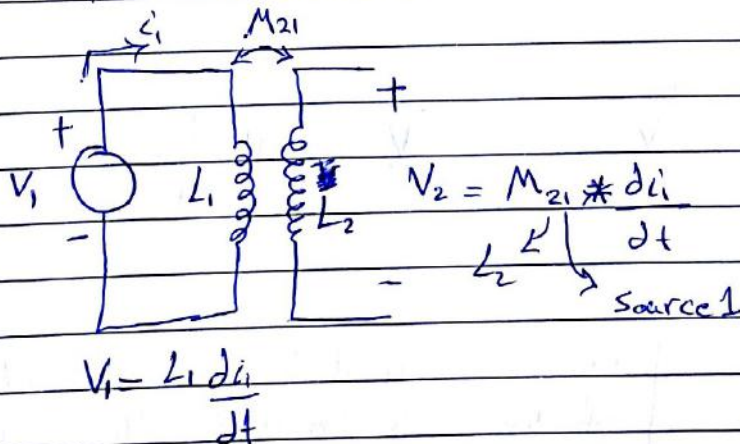 i₁ M₂₁
+ +
V₁ L₁ L₂ V₂ = M₂₁ * di₁/dt
- -
L₂ Source 1
V₁ = L₁ di₁/dt